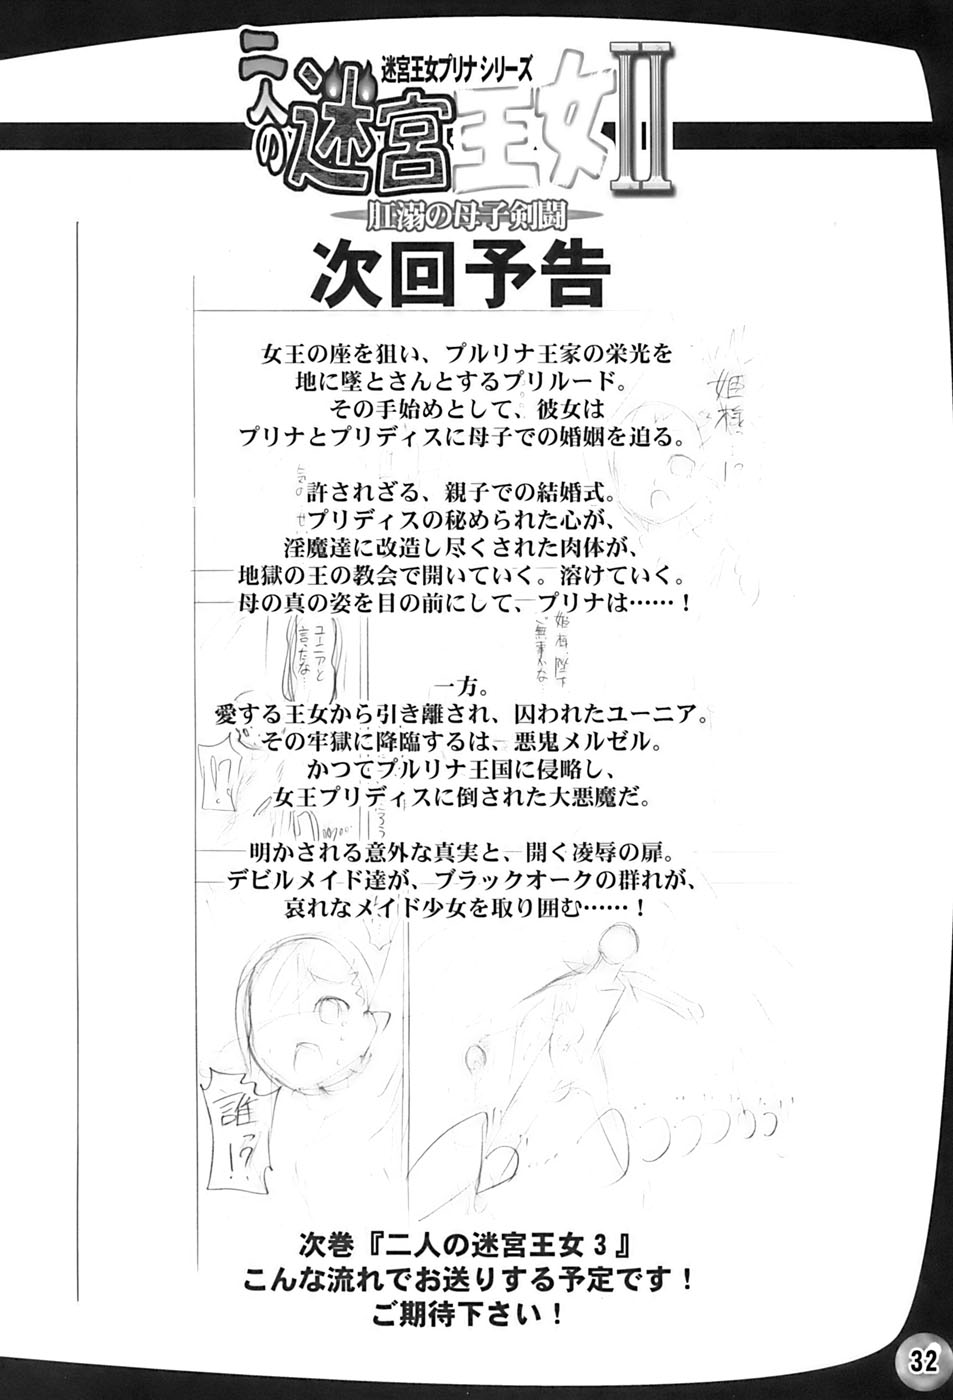 迷宮王女プリナシリーズ
二人の迷宮王女II
肛溺の母子剣闘
次回予告
女王の座を狙い、プルリナ王家の栄光を
地に墜とさんとするプリルード。
その手始めとして、彼女は
プリナとプリディスに母子での婚姻を迫る。
許されざる、親子での結婚式。
プリディスの秘められた心が、
淫魔達に改造し尽くされた肉体が、
地獄の王の教会で開いていく。溶けていく。
母の真の姿を目の前にして、プリナは……！
一方。
愛する王女から引き離され、囚われたユーニア。
その牢獄に降臨するは、悪鬼メルゼル。
かつてプルリナ王国に侵略し、
女王プリディスに倒された大悪魔だ。
明かされる意外な真実と、開く凌辱の扉。
デビルメイド達が、ブラックオークの群れが、
哀れなメイド少女を取り囲む……！
姫様…!?
ユーニアと
言ったな…
姫様 陛下
ご無事かな…
!?
誰!?
次巻『二人の迷宮王女3』
こんな流れでお送りする予定です！
ご期待下さい！
32